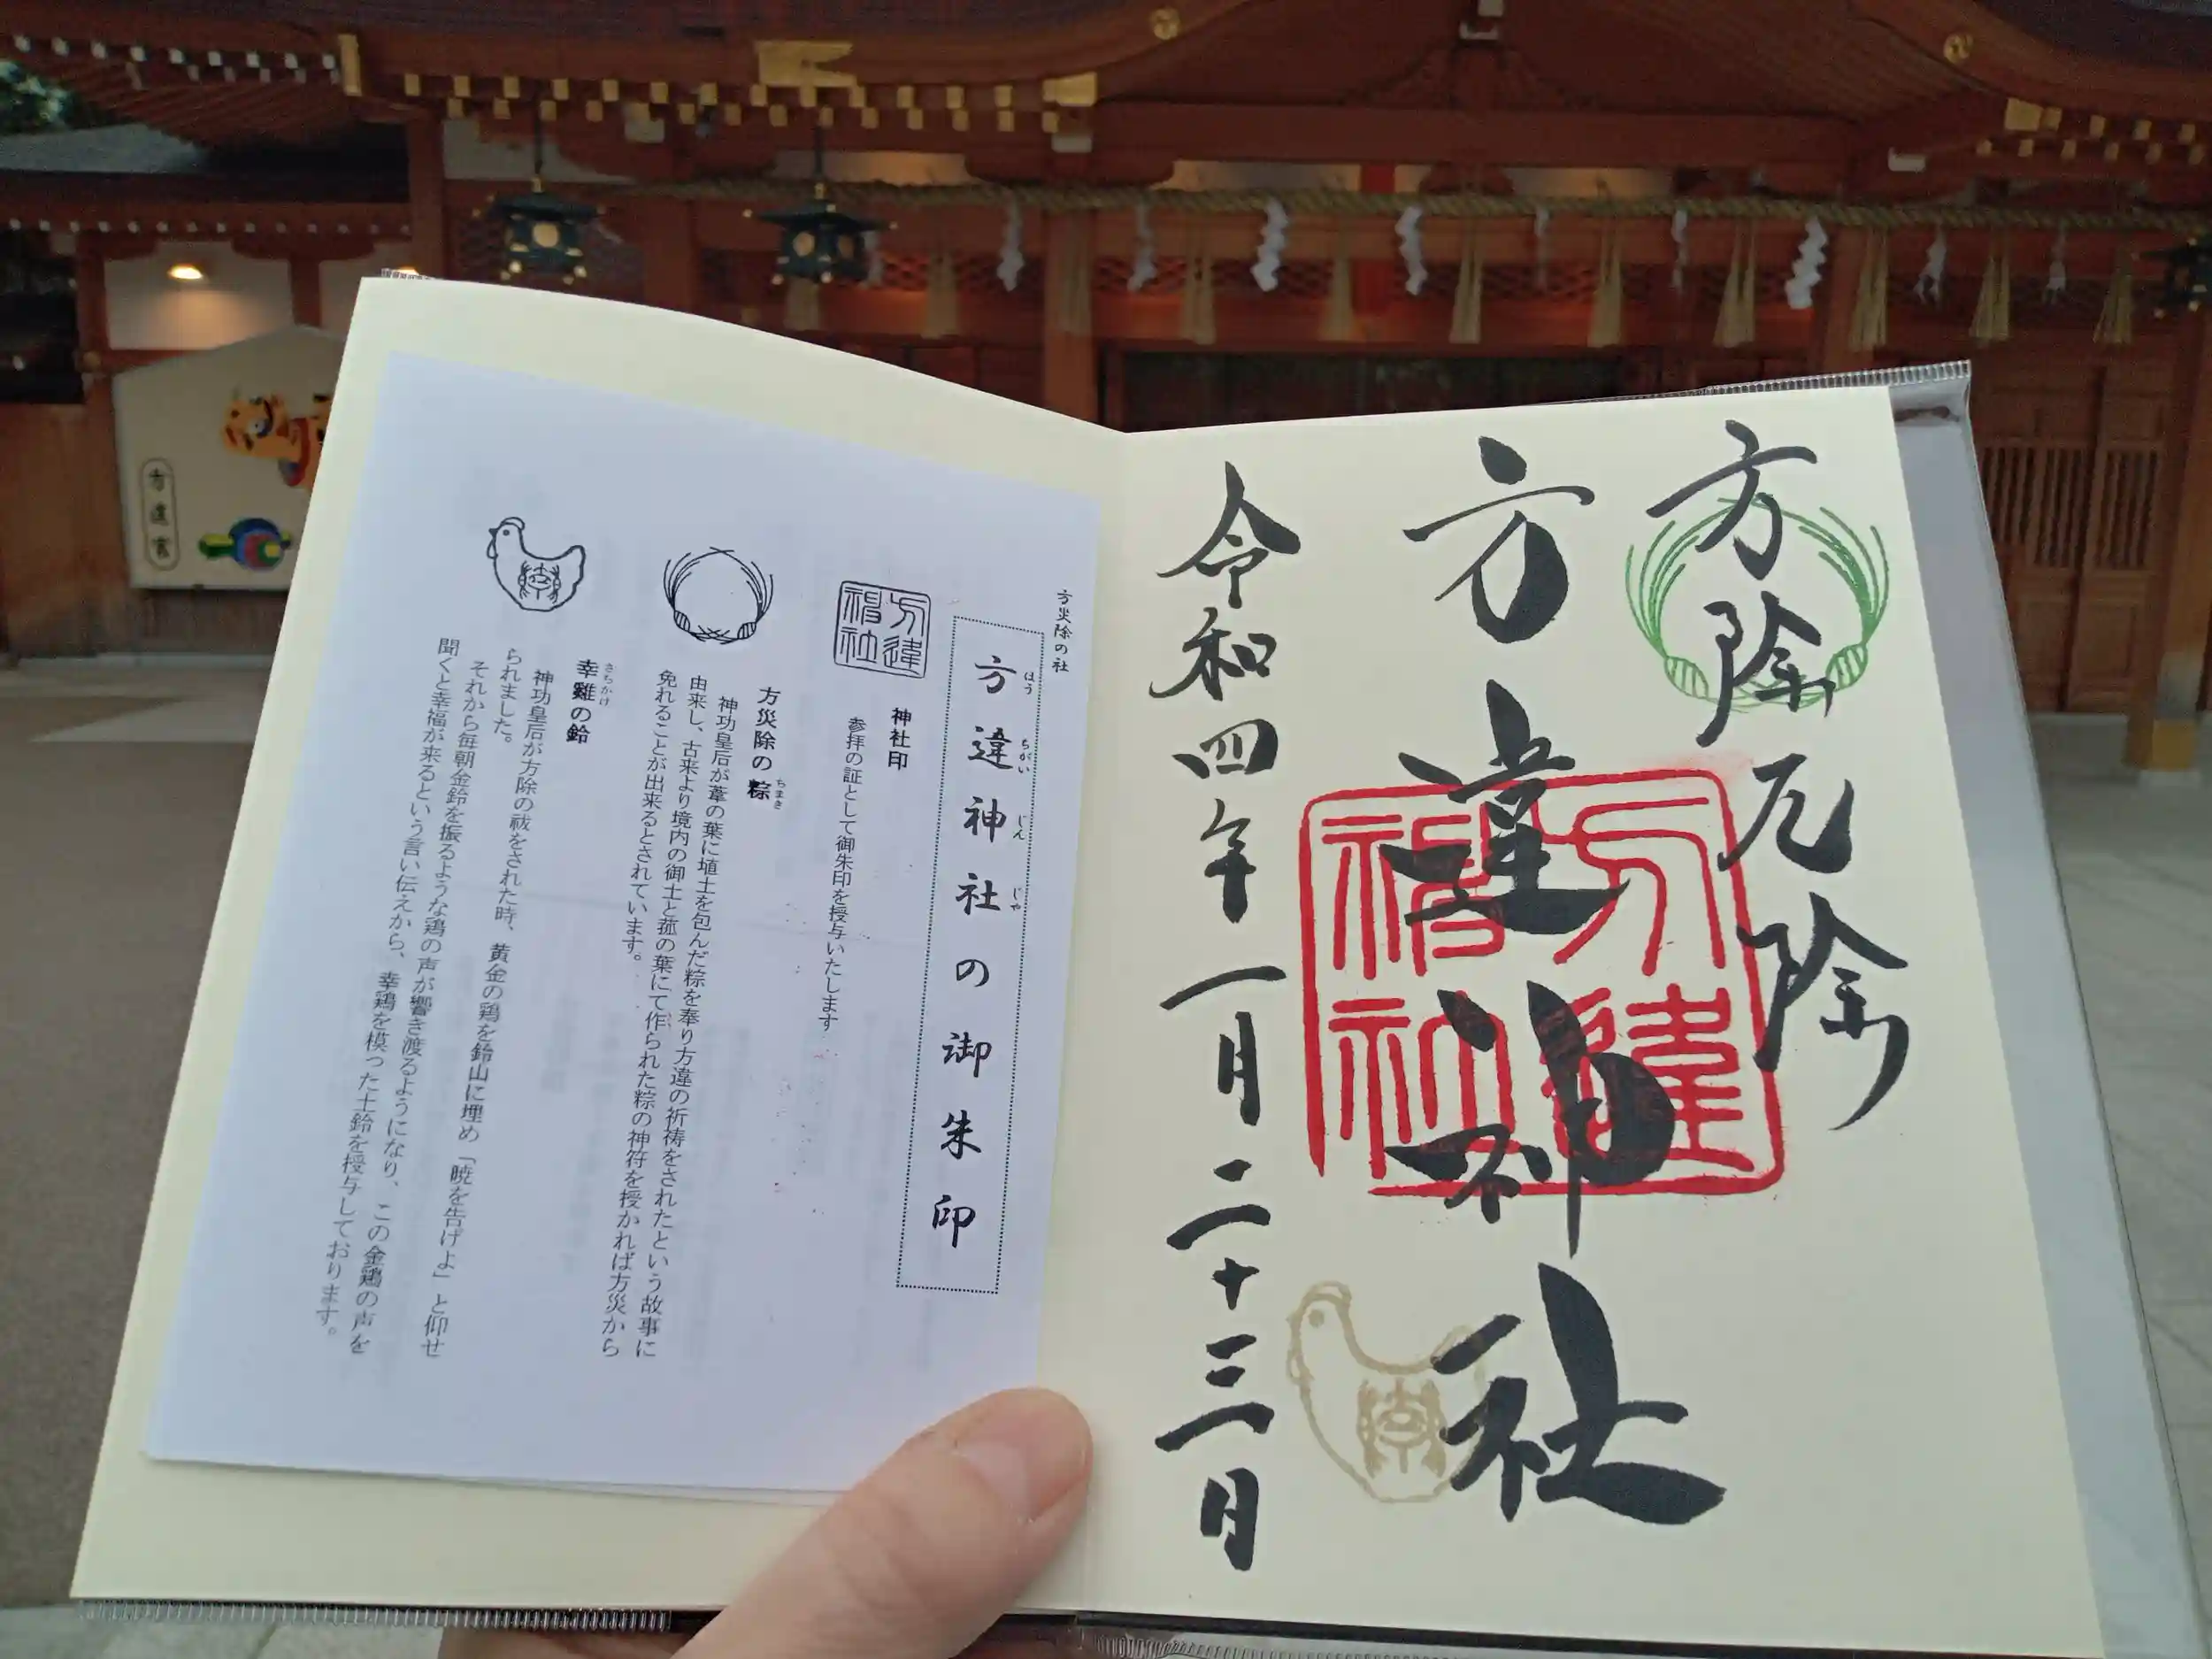 方除厄除
方違神社
方違神社
令和四年一月二十三日
幸
方災除の社
方違神社の御朱印
ほう ちがい じん じゃ
方違神社
神社印
参拝の証として御朱印を授与いたします
方災除の粽
ちまき
神功皇后が葦の葉に埴土を包んだ粽を奉り方違の祈祷をされたという故事に
由来し、古来より境内の御土と菰の葉にて作られた粽の神符を授かれば方災から
免れることが出来るとされています。
幸
幸雞の鈴
さちかけ
神功皇后が方除の祓をされた時、黄金の鶏を鈴山に埋め「暁を告げよ」と仰せ
られました。
それから毎朝金鈴を振るような鶏の声が響き渡るようになり、この金鶏の声を
聞くと幸福が来るという言い伝えから、幸鶏を模った土鈴を授与しております。
方違宮